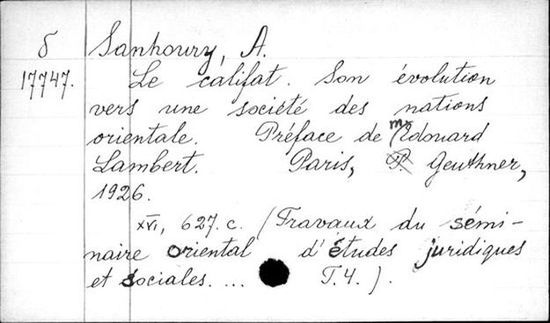 δ Sanhoury, A.
17747. Le califat. Son évolution
vers une société des nations
orientale. Préface de Mr Edouard
Lambert. Paris, P. Geuthner,
1926.
XVI, 627. c. (Travaux du sémi-
naire oriental d'études juridiques
et sociales. ... T. 4.).